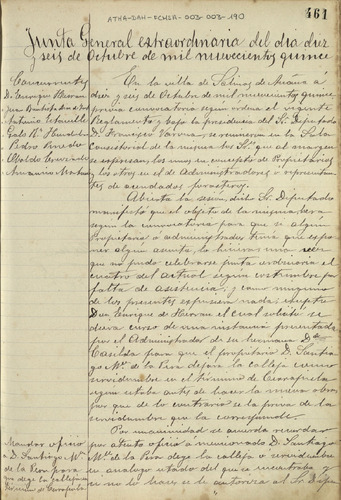 ATHA-DAH-FCHSR-003-003-190
461
Junta General extraordinaria del dia diez
y seis de Octubre de mil novecientos quince
Concurrentes
D. Enrique Herran
Pedro Pinedo
En la villa de Salinas de Añana á
diez y seis de Octubre de mil novecientos quince
previa convocatoria segun ordena el vigente
Reglamento y bajo la presidencia del Sr. Diputado
D. Francisco Varona, se reunieron en la Sala
Consistorial de la misma los Srs. que al margen
se expresan, los unos en concepto de Propietarios
y los otros en el de Administradores o representan-
tes de acendados forasteros.
Abierta la sesion, dicho Sr. Diputado
manifestó que el objeto de la misma era
segun la convocatoria para que si algun
Propietario o administrador tenia que expo-
ner algun asunto lo hiciera, una vez
que no pudo celebrarse junta ordinaria el
cuatro del actual segun costumbre por
falta de asistencia; y como ninguno
de los presentes expusiera nada, excepto
Don Enrique de Herran el cual solicitó se
diera curso de una instancia presentada
por el Administrador de su hermana Dª
Casilda para que el propietario D. Santia-
go Mª de la Pera dejara la calleja como
servidumbre en el termino de
segun estaba antes de hacer la nueva obra,
por que de lo contrario la priva de la
servidumbre que la corresponde.
Por unanimidad se acuerda recordar
por atento oficio á mencionado D. Santiago
Mª de la Pera deje la calleja o servidumbre
en analogo estado del que se encontraba y
en no lo hace se le autoriza al Sr. Dipu
Mandar oficio
a D. Santiago Mª
de la Pera para
que deje la calleja en
termino de